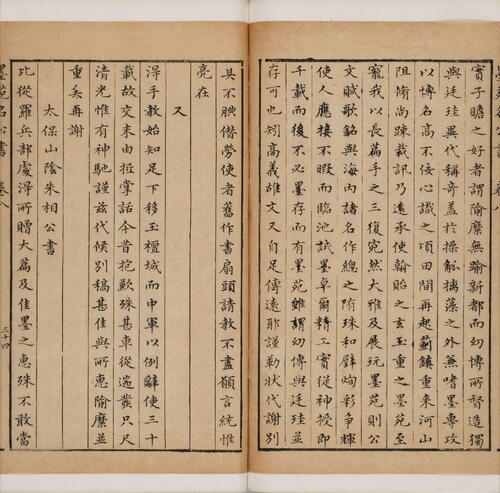 賓子瞻之好者謂隃糜無喻新都而幼博所督造獨
與廷珪異代稱奇蓋於操觚摛藻之外無嗜墨專攻
以博名高不佞心識之頃田間再起薊鎮重來河山
阻脩尚踈裁訊乃遠承使翰貽之玄玉重之墨苑至
寵我以長篇手之三復宛然大雅及展玩墨苑則公
文賦歌銘與海內諸名作總之隋珠和璧炳彩爭輝
使人應接不暇而臨池試墨卓爾精工實從神授即
千載而後不必墨存而有墨苑雖謂幼博與廷珪並
存可也矧高義雄文又自足傳遠耶謹勒狀代謝別
具不腆僣勞使者舊作書扇頭請教不盡願言統惟
亮在
又
淂手教始知足下移玉檀城而中軍以例辭使三十
載故交未由抵掌話今昔抱歉殊甚車從過糞只尺
清光惟有神馳謹茲代候別稿甚佳與所惠隃麋並
重矣再謝
太保山陰朱相公書
比從羅兵部處淂所贈大篇及佳墨之惠殊不敢當
墨苑名公書 卷八
三十四